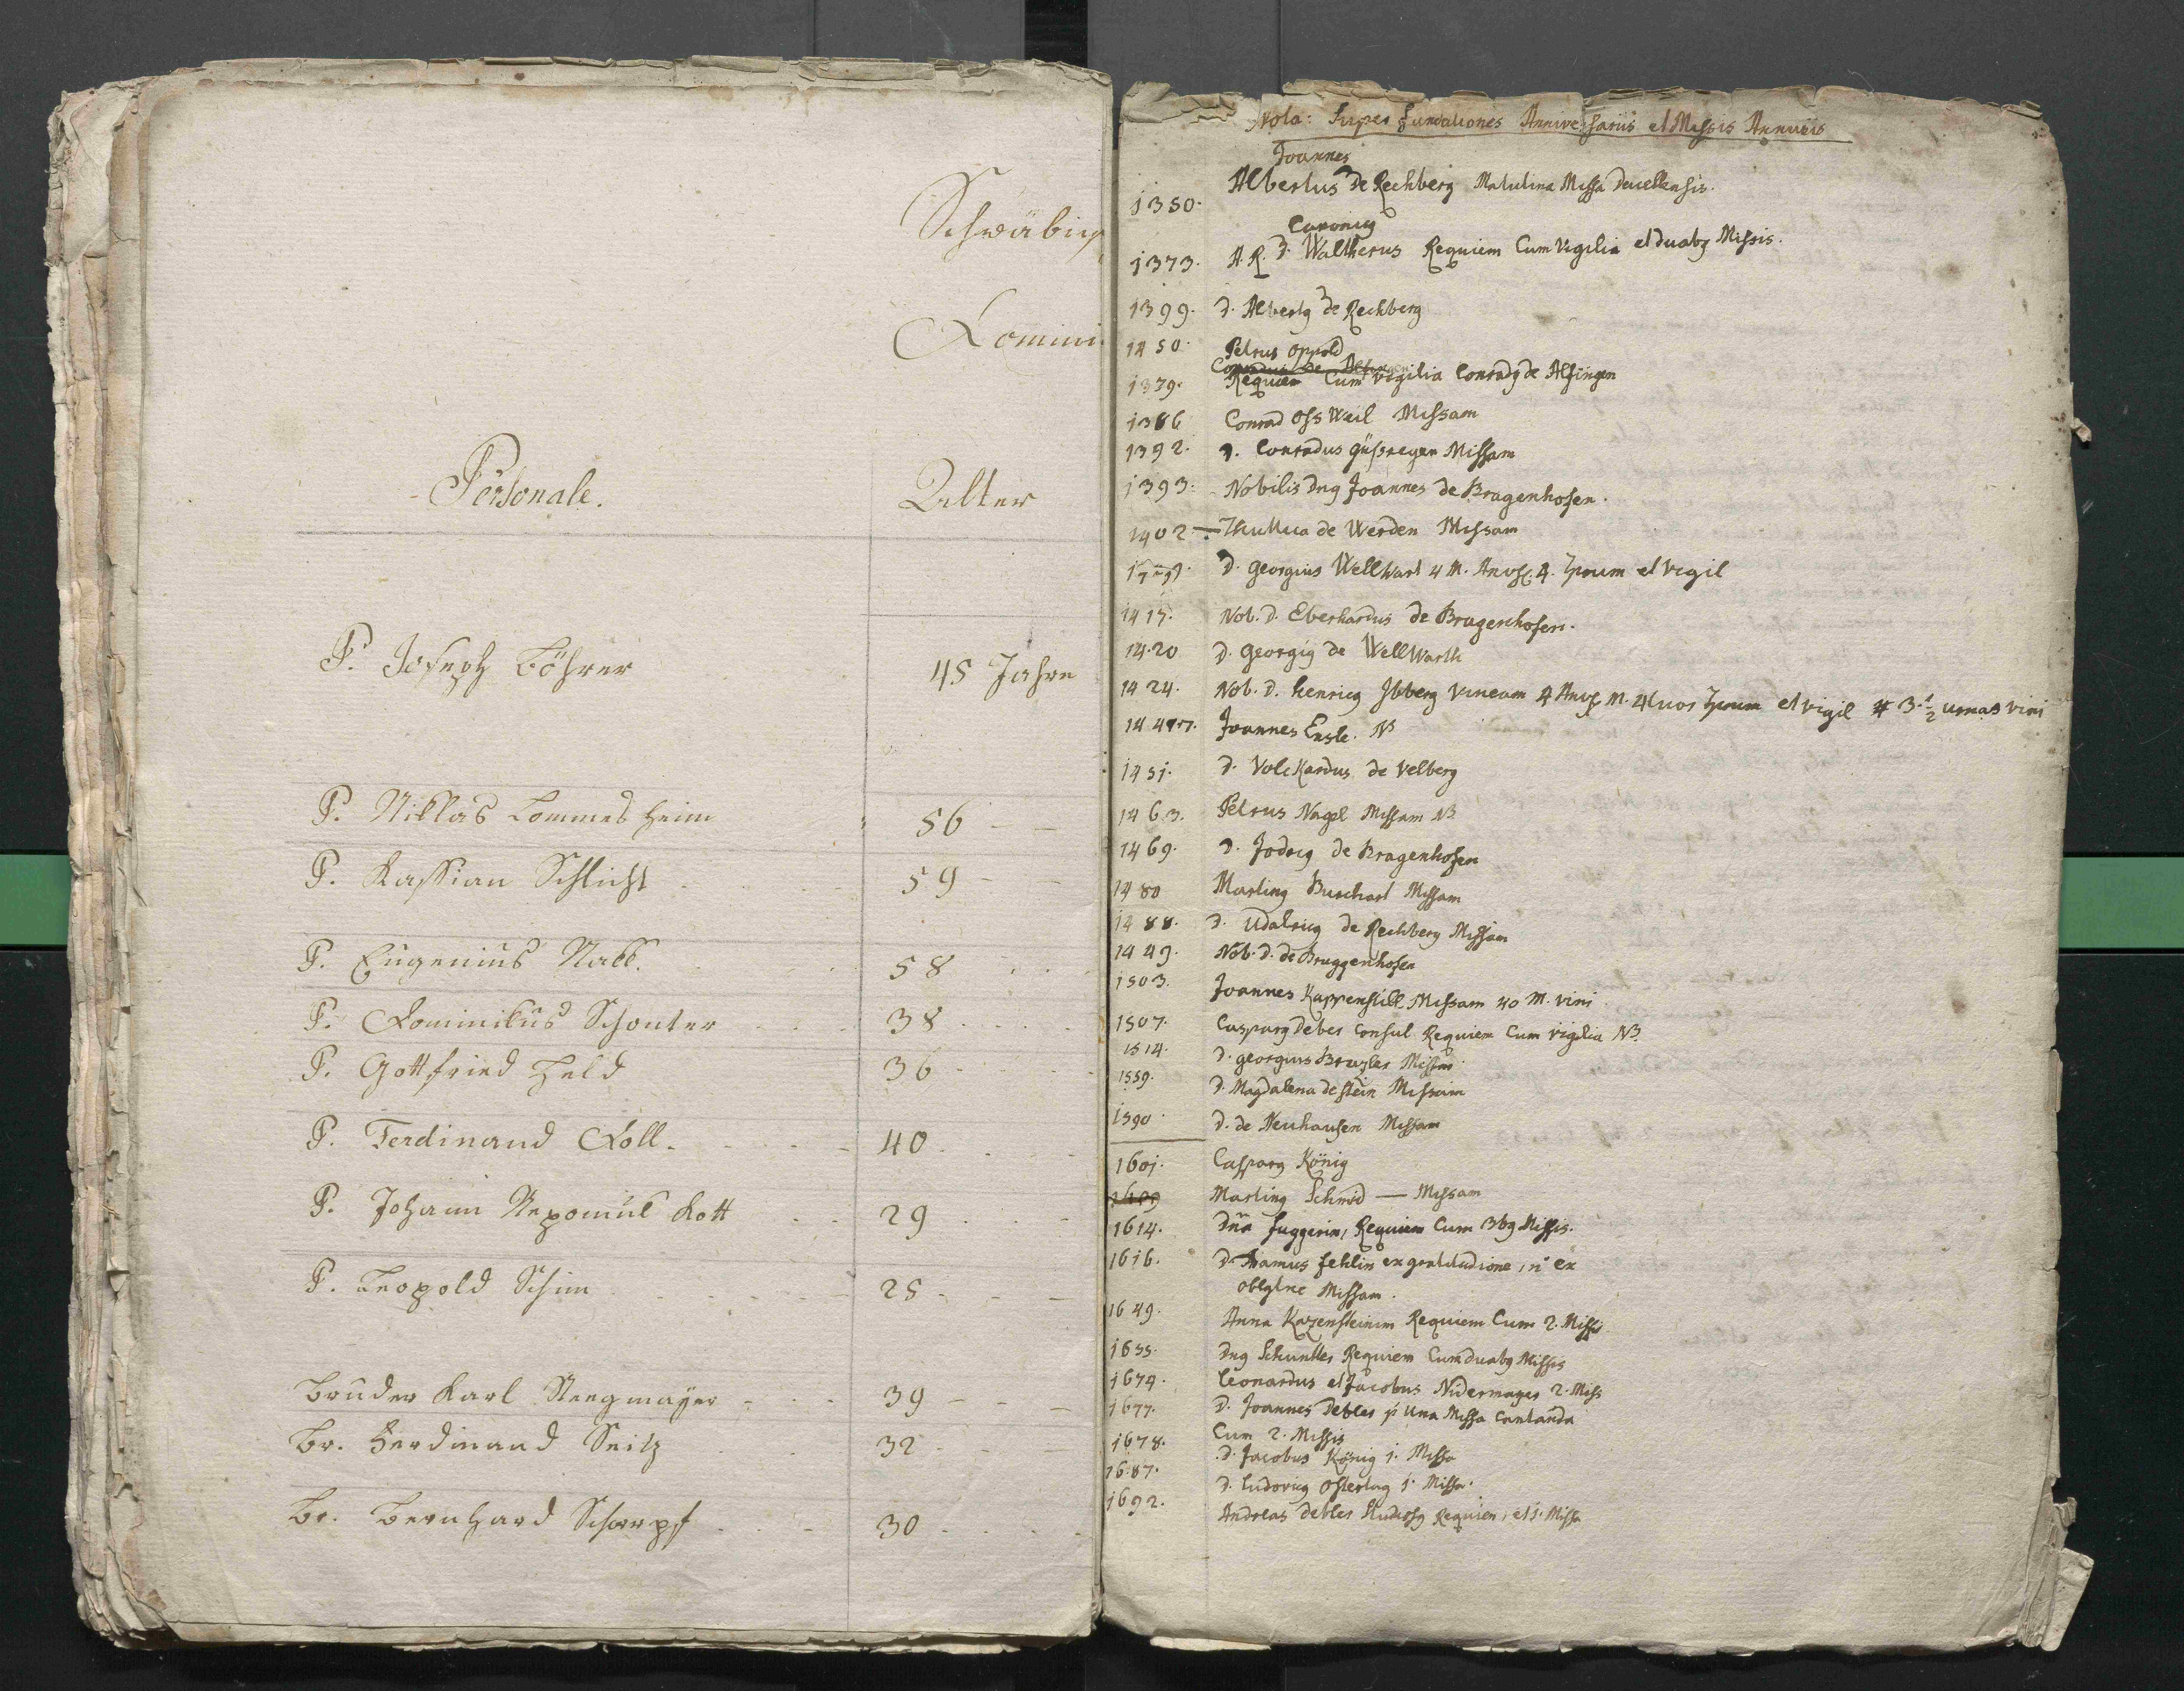 Schwäbisch
Domini
Personale.
Alter
P. Joseph Böhrer
45 Jahre
P. Niklas Lommesheim
56
P. Kassian Schlicht
59
P. Eugenius Nakk.
58
P. Dominikus Schonter
38
P. Gottfried Held
36
P. Ferdinand Doll.
40
P. Johann Nepomuk Kott
29
P. Leopold Schim
25
Bruder Karl Stengmayer
39
Br. Ferdinand Seitz
32
Br. Bernhard Scharpf
30
Nota: Super Fundationes Anniversariis et Missis Annuis
Joannes
1350. Albertus de Rechberg Matutina Missa
Canonicg
1373. A. R. D. Waltherus Requiem Cum Vigilia et duabg Missis.
1399. D. Albertg de Rechberg
1450. Petrus Oppold
1379. Requiem Cum Vigilia Conradg de Alfingen
1386 Conrad Ossweil Missam
1392. D. Conradus Güssregen Missam
1393. Nobilis Dng Joannes de Bragenhofen.
1402 — de Werden Missam
D. Georgius Wellwart 4 M. et Vigil
1415. Nob. D. Eberhardus de Bragenhofen.
1420 D. Georgig de Wellwarth
1424. Nob. D. Henricg Ybberg Vineam et vigil 3 1/2 urnas vini
Joannes Ensle. NB
1451. D. Volckardus de Velberg
1463. Petrus Nagel Missam NB
1469. D. Jodocg de Bragenhofen
1480 Marting Burchart Missam
1488. D. Udalricg de Rechberg Missam
1449. Nob. D. de Bruggenhofen
1503. Joannes Kappenstill Missam 40 M. vini
1507. Casparg Debler Consul Requiem Cum Vigilia NB.
1514. D. Georgius Missam
1559. D. Magdalena de Stein Missam
1590. D. de Neuhausen Missam
1601. Casparg König
Marting Schmid — Missam
1614. Dna Fuggerin, Requiem Cum 3bg Missis.
1616. D. Fehlin ex gratitudione, n ex
oblgtne Missam.
1649. Anna Kazensteinin Requiem Cum 2. Missis
1655. Dng Schuntter Requiem Cum duabg Missis
1674. Leonardus et Jacobus Nidermayer 2. Miss
1677. D. Joannes Debler p Una Missa Cantanda
Cum 2. Missis
1678. D. Jacobus König 1. Missa
1687. D. Ludovicg Ostertag 1. Missa.
1692. Andreas Debler Requiem, et 1. Missa